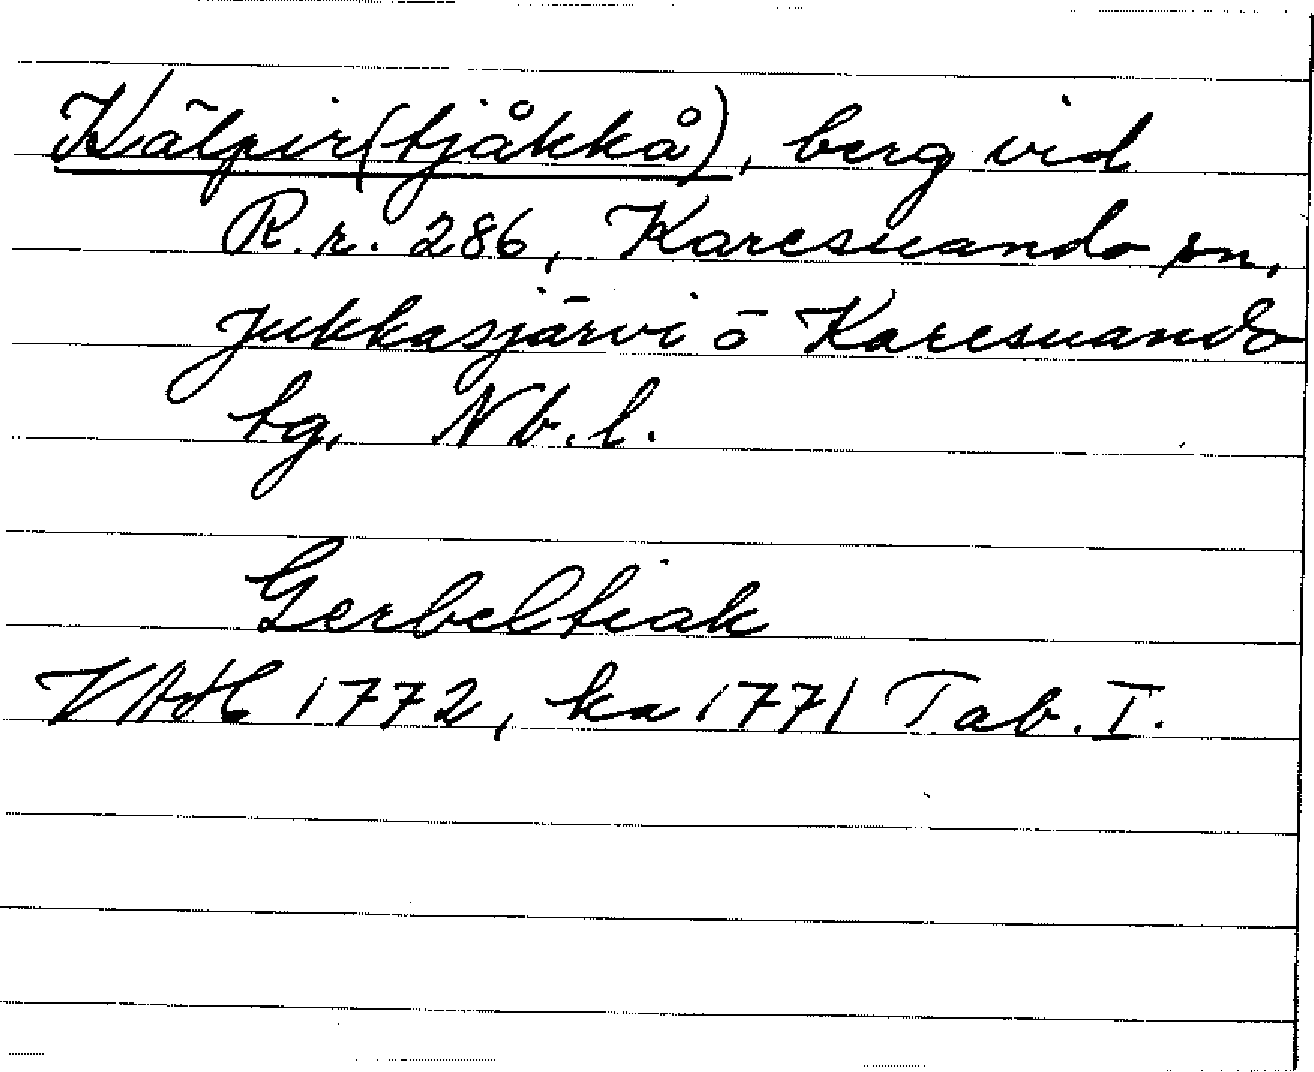 Kälpir(tjåkkå), berg vid
R.r. 286, Karesuando sn,
Jukkasjärvi o Karesuando
tg, Nb. l.
Gerbeltiak
VAH 1772, ka 1771 Tab. I.